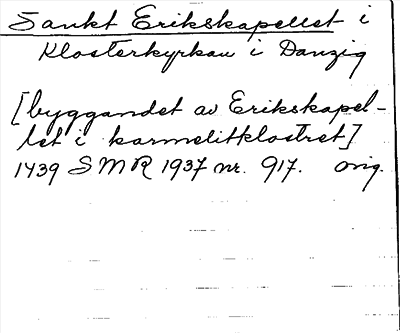 Sankt Erikskapellet i
Klosterkyrkan i Danzig
[byggandet av Erikskapel-
let i karmelitklostret]
1439 SMR 1937 nr. 917. orig.